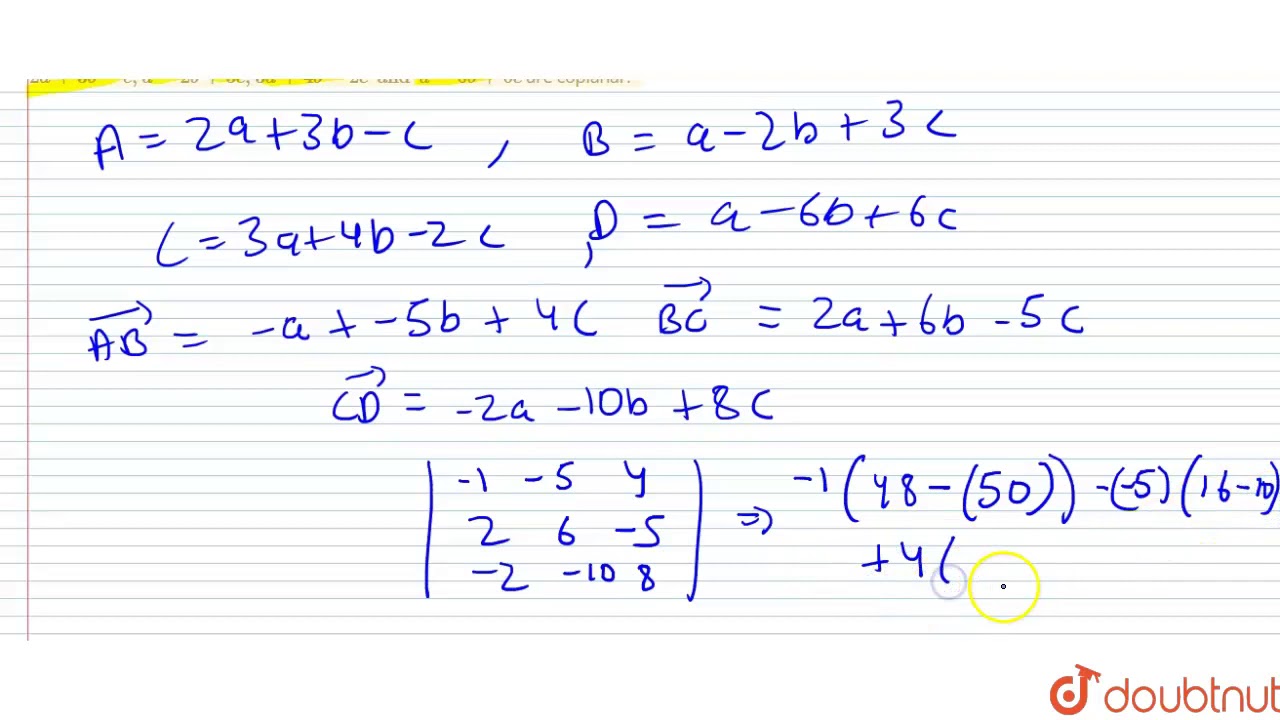 are coplanar.
A = 2a+3b-c , B = a-2b+3c
C = 3a+4b-2c , D = a-6b+6c
AB = -a + -5b + 4c BC = 2a+6b-5c
CD = -2a -10b +8c
| -1 -5 4 | ⇒ -1 (48-(50)) -(-5)(16-10)
2 6 -5
-2 -10 8
+4(
doubtnut